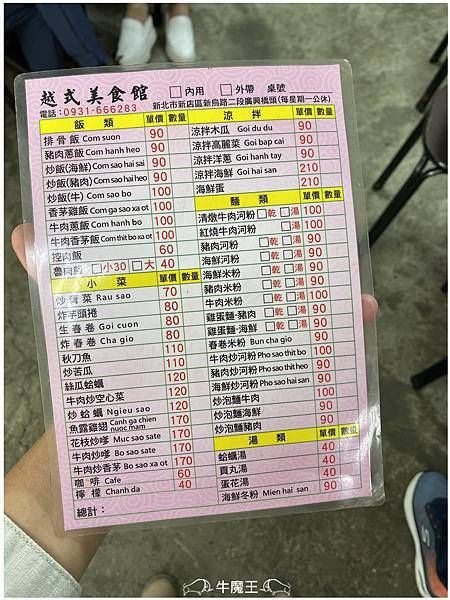 越式美食館 □內用 □外帶 桌號
電話：0931-666283 新北市新店區新烏路二段廣興橋頭(每星期一公休)
飯 類 單價 數量
排骨飯 Com suon 90
豬肉蔥飯 Com hanh heo 90
炒飯(海鮮) Com sao hai sai 90
炒飯(豬肉) Com sao hai heo 90
炒飯(牛) Com sao bo 100
香茅雞飯 Com ga sao xa ot 100
牛肉蔥飯 Com hanh bo 100
牛肉香茅飯 Com thit bo xa ot 100
控肉飯 60
魯肉飯 □小30 □大 40
小 菜 單價 數量
炒青菜 Rau sao 70
炸芋頭捲 80
生春卷 Goi cuon 80
炸春卷 Cha gio 80
秋刀魚 110
炒苦瓜 110
絲瓜蛤蠣 120
牛肉炒空心菜 120
炒蛤蠣 Ngieu sao 120
魚露雞翅 Canh ga chien nuoc mam 170
花枝炒嗲 Muc sao sate 170
牛肉炒嗲 Bo sao sate 170
牛肉炒香茅 Bo sao xa ot 170
咖啡 Cafe 60
檸檬 Chanh da 40
總計：
涼 拌 單價 數量
涼拌木瓜 Goi du du 90
涼拌高麗菜 Goi bap cai 90
涼拌洋蔥 Goi hanh tay 90
涼拌海鮮 Goi hai san 210
海鮮蛋 210
麵 類 單價 數量
清燉牛肉河粉 □乾 □湯 100
紅燒牛肉河粉 □湯 100
豬肉河粉 □乾 □湯 90
海鮮河粉 □乾 □湯 90
海鮮米粉 □乾 □湯 90
豬肉米粉 □乾 □湯 90
牛肉米粉 □乾 □湯 100
雞蛋麵-豬肉 □乾 □湯 90
雞蛋麵-海鮮 □乾 □湯 90
春卷米粉 Bun cha gio 90
牛肉炒河粉 Pho sao thit bo 100
豬肉炒河粉 Pho sao thit heo 90
海鮮炒河粉 Pho sao hai san 90
炒泡麵牛肉 100
炒泡麵海鮮 90
炒泡麵豬肉 90
湯 類 單價 數量
蛤蠣湯 40
貢丸湯 40
蛋花湯 40
海鮮冬粉 Mien hai san 90
牛魔王